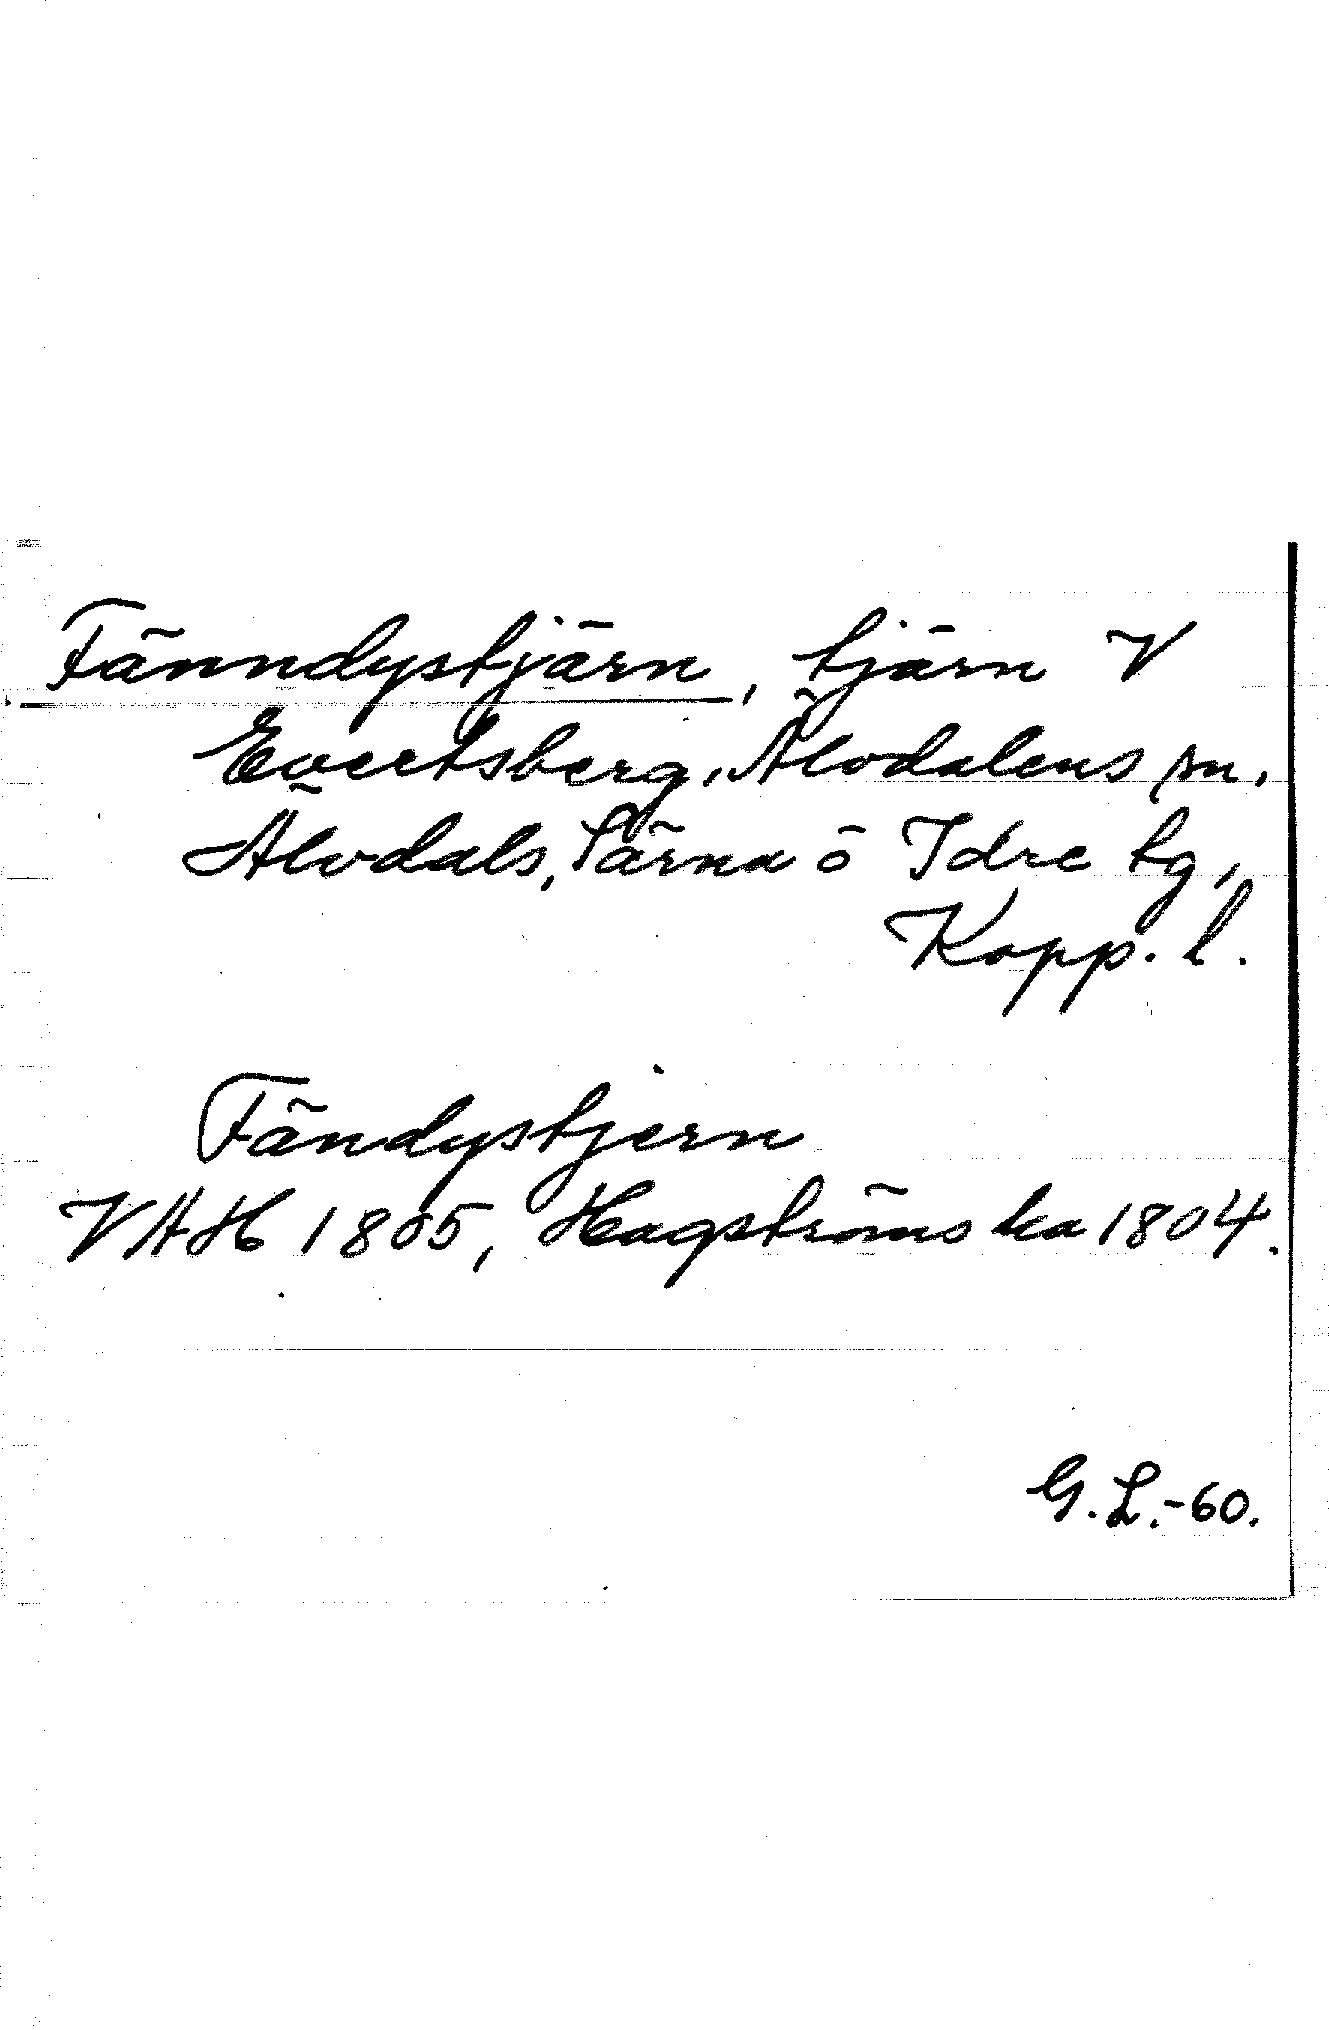 Fänndystjärn, tjärn V
Evertsberg, Älvdalens sn,
Älvdals, Särna o Idre tg,
Kopp. l.
Fändystjern
VAH 1805, Hagströms ka 1804.
G. L.-60.